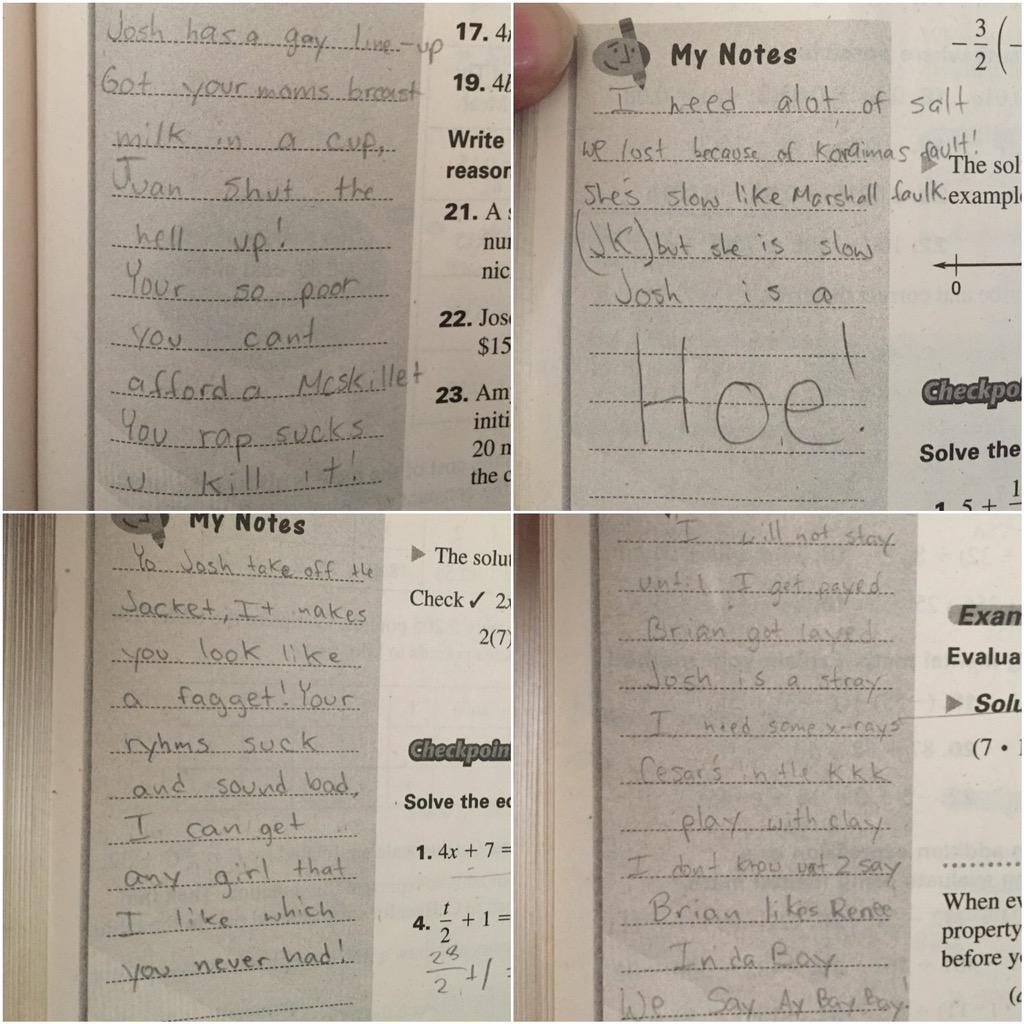 Josh has a gay line-up
Got your moms breast
milk in a cup,
Juan Shut the
hell up!
Your so poor
you cant
afford a Mcskillet
You rap sucks
u kill it!
17. 4
19. 4
Write
reason
21. A
nu
nic
22. Jos
$15
23. Am
initi
20 n
the c
My Notes
I need alot of salt
we lost because of Koraimas fault!
She's slow like Marshall faulk
(JK) but she is slow
Josh is a
Hoe!
-3/2 (-
The sol
example
0
Checkpo
Solve the
1. 5 + 1
My Notes
Yo Josh take off the
Jacket, It makes
you look like
a fagget! Your
ryhms suck
and sound bad,
I can get
any girl that
I like which
you never had!
The solu
Check ✓ 2x
2(7)
Checkpoin
Solve the ec
1. 4x + 7 =
4. t/2 + 1 =
28/2 + 1
I will not stay
until I get payed
Brian got layed
Josh is a stray
I need some x-rays
Cesar's in the KKK
play with clay
I dont know wat 2 say
Brian likes Renee
In da Bay
We Say Ay Bay Bay!
Exam
Evalua
Solu
(7 • 1
When ev
property
before y
(a